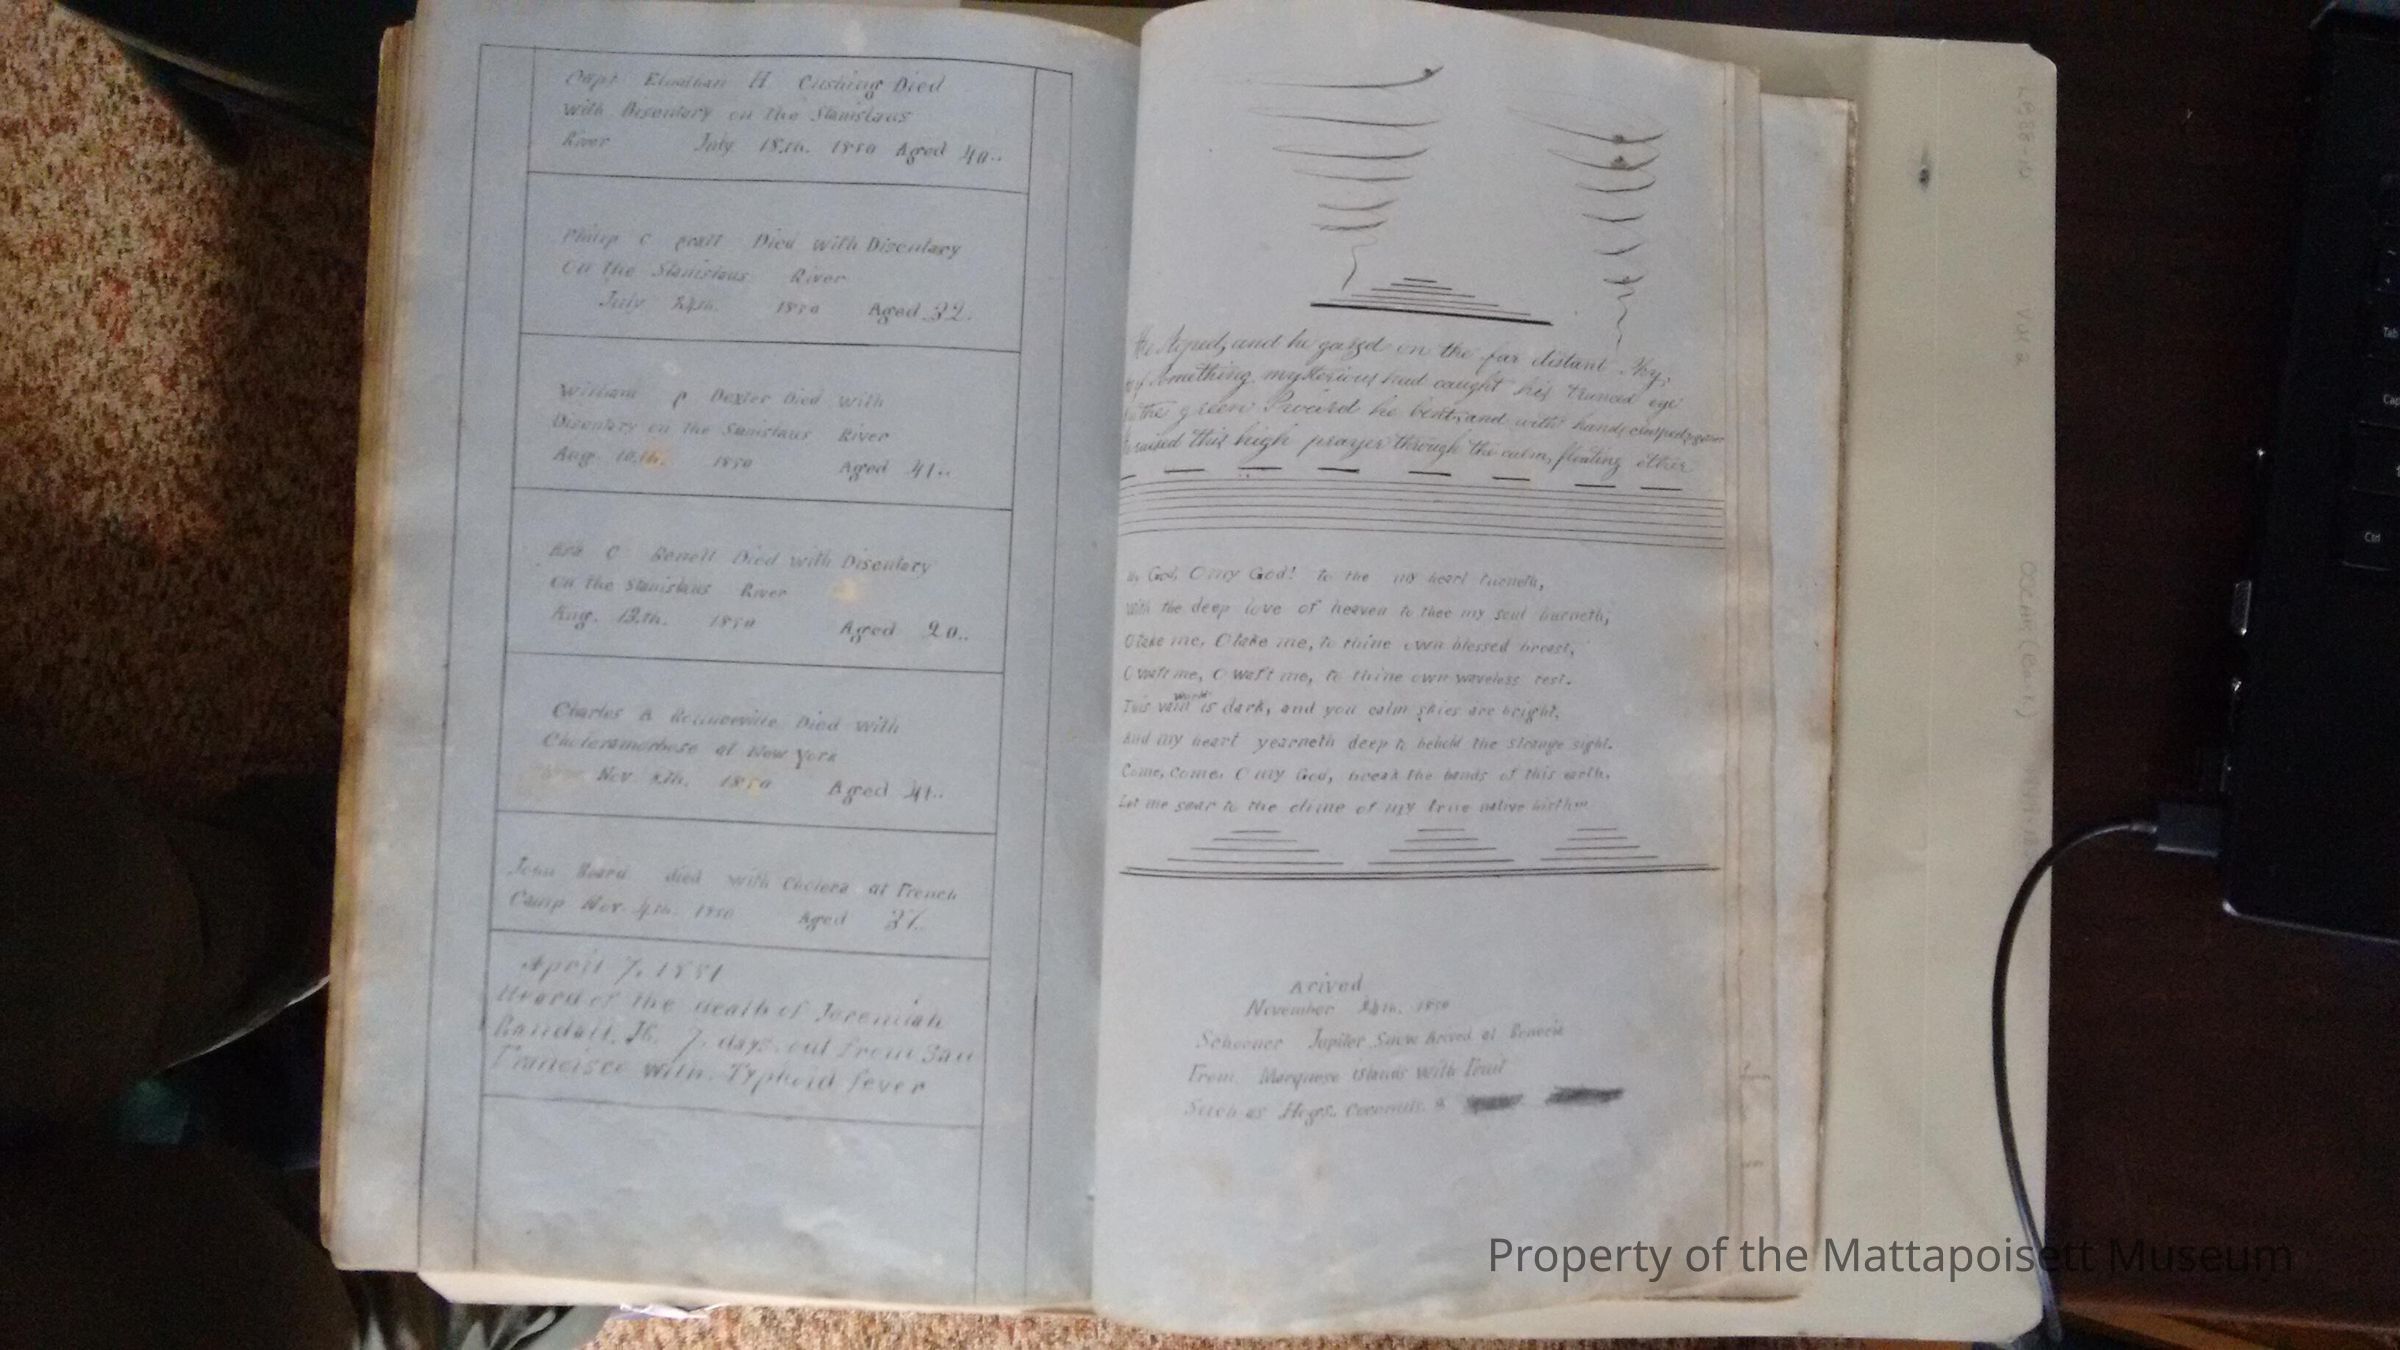 Capt Elnathan H Cushing Died
with Disentary on the Stanislaus
River July 18th. 1850 Aged 40..
Philip C Pratt Died with Disentary
On the Stanislaus River
July 24th. 1850 Aged 32.
William P Dexter Died with
Disentary on the Stanislaus River
Aug. 10th. 1850 Aged 41..
C Died with Disentary
On the Stanislaus River
Aug. 13th. 1850 Aged 20..
Charles Died with
Choleramorbose at New York
Nov 1850 Aged 41..
John died with Cholera at French
Camp Nov. 4th. 1850 Aged 37..
April 7, 1851
Heard of the death of Jeremiah
Randall, JR. 7. days out from San
Francisco with. Typhoid fever
He stoped, and he gazed on the far distant sky,
As if something mysterious had caught his tranced eye
On the green he bent, and with hands clasped together
He raised this high prayer through the calm, floating ether
my God, O my God! to the my heart turneth,
With the deep love of heaven to thee my soul burneth;
O take me, O take me, to thine own blessed breast,
O waft me, O waft me, to thine own waveless rest.
world
This vain is dark, and you calm skies are bright,
And my heart yearneth deep to behold the strange sight.
Come, come, O my God, break the bands of this earth.
Let me soar to the clime of my true native birth
Arived
November 1850
Schooner Jupiter Snow Arived at Benecia
From Marquese Islands with Fruit
Such as Hogs.. Coconuts. &
Property of the Mattapoisett Museum